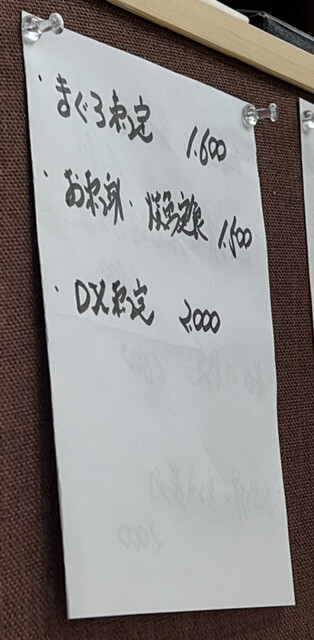 ・まぐろ刺定 1.600
・お刺身・焼魚定食 1.500
・DX刺定 2.000